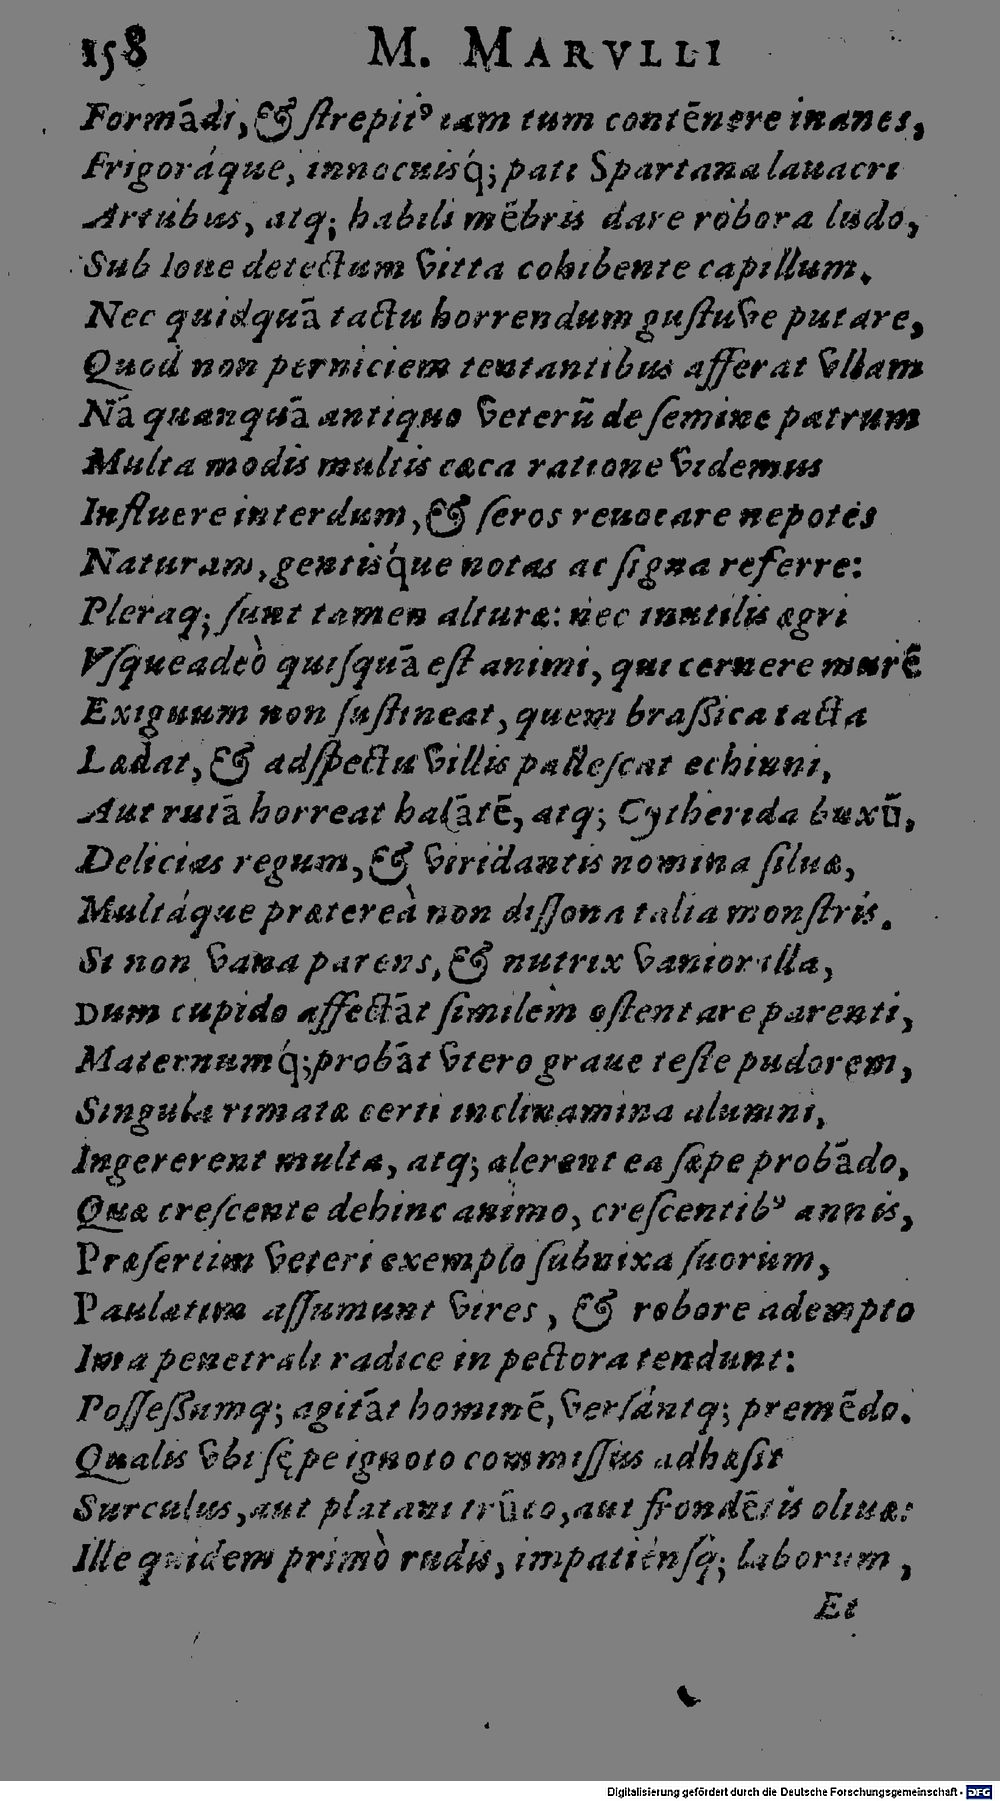 158 M. MARVLLI
Formādi, & ſtrepit⁹ iam tum contēnere inanes,
Frigoráque, innocuisq́; pati Spartana lauacri
Artubus, atq; habili mēbris dare robora ludo,
Sub Ioue detectum vitta cohibente capillum.
Nec quidquā tactu horrendum guſtuve putare,
Quod non perniciem tentantibus afferat vllam
Nā quanquā antiquo veterū de ſemine patrum
Multa modis multis cæca ratione videmus
Influere interdum, & ſeros reuocare nepotes
Naturam, gentisq́ue notas ac ſigna referre:
Pleraq; ſunt tamen alturæ: nec inutilis ægri
Vſqueadeò quiſquā eſt animi, qui cernere murē
Exiguum non ſuſtineat, quem braſſica tacta
Lædat, & adſpectu villis palleſcat echinni,
Aut rutā horreat halātē, atq; Cytherida buxū,
Delicias regum, & viridantis nomina ſiluæ,
Multáque prætereà non diſſona talia monſtris.
Si non vana parens, & nutrix vanior illa,
Dum cupido affectāt ſimilem oſtentare parenti,
Maternumq́; probāt vtero graue teſte pudorem,
Singula rimatæ certi inclinamina alumni,
Ingererent multa, atq; alerent ea ſæpe probādo,
Quæ creſcente dehinc animo, creſcentib⁹ annis,
Præſertim veteri exemplo ſubnixa ſuorum,
Paulatim aſſumunt vires, & robore adempto
Ima penetrali radice in pectora tendunt:
Poſſeſſumq; agitāt hominē, verſántq; premēdo.
Qualis vbi ſępe ignoto commiſſus adhæſit
Surculus, aut platani trūco, aut frondētis oliuæ:
Ille quidem primò rudis, impatiénſq́; laborum,
Et
Digitalisierung gefördert durch die Deutsche Forschungsgemeinschaft - DFG